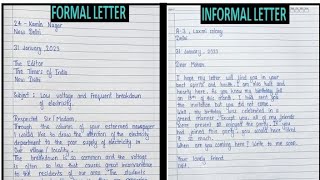 FORMAL LETTER
24 - Kamla Nagar
New Delhi
31 January, 2023
The Editor
The Times of India
New Delhi
Subject : Low voltage and frequent breakdown
of electricity.
Respected Sir / Madam,
Through the column of your esteemed newspaper
I would like to draw the attention of the electricity
department to the poor supply of electricity in
our village / locality.
The breakdown is so common and the voltage
is often so low that causes great inconvenience
to the residents of our area. The students
INFORMAL LETTER
A-3, Laxmi colony
Delhi
31 January, 2023
Dear Mohan
I hope my letter will find you in your
best spirits and health. I am also well and
hearty here. As you know my birthday fell
on of this month. I had sent you
the invitation but you did not come.
Well my birthday was celebrated in a
grand manner. Except you, all of my friends
were present to enjoyed the party. If you
had joined this party, you would have liked
so much.
When are you coming here? Write to me soon.
Your loving friend